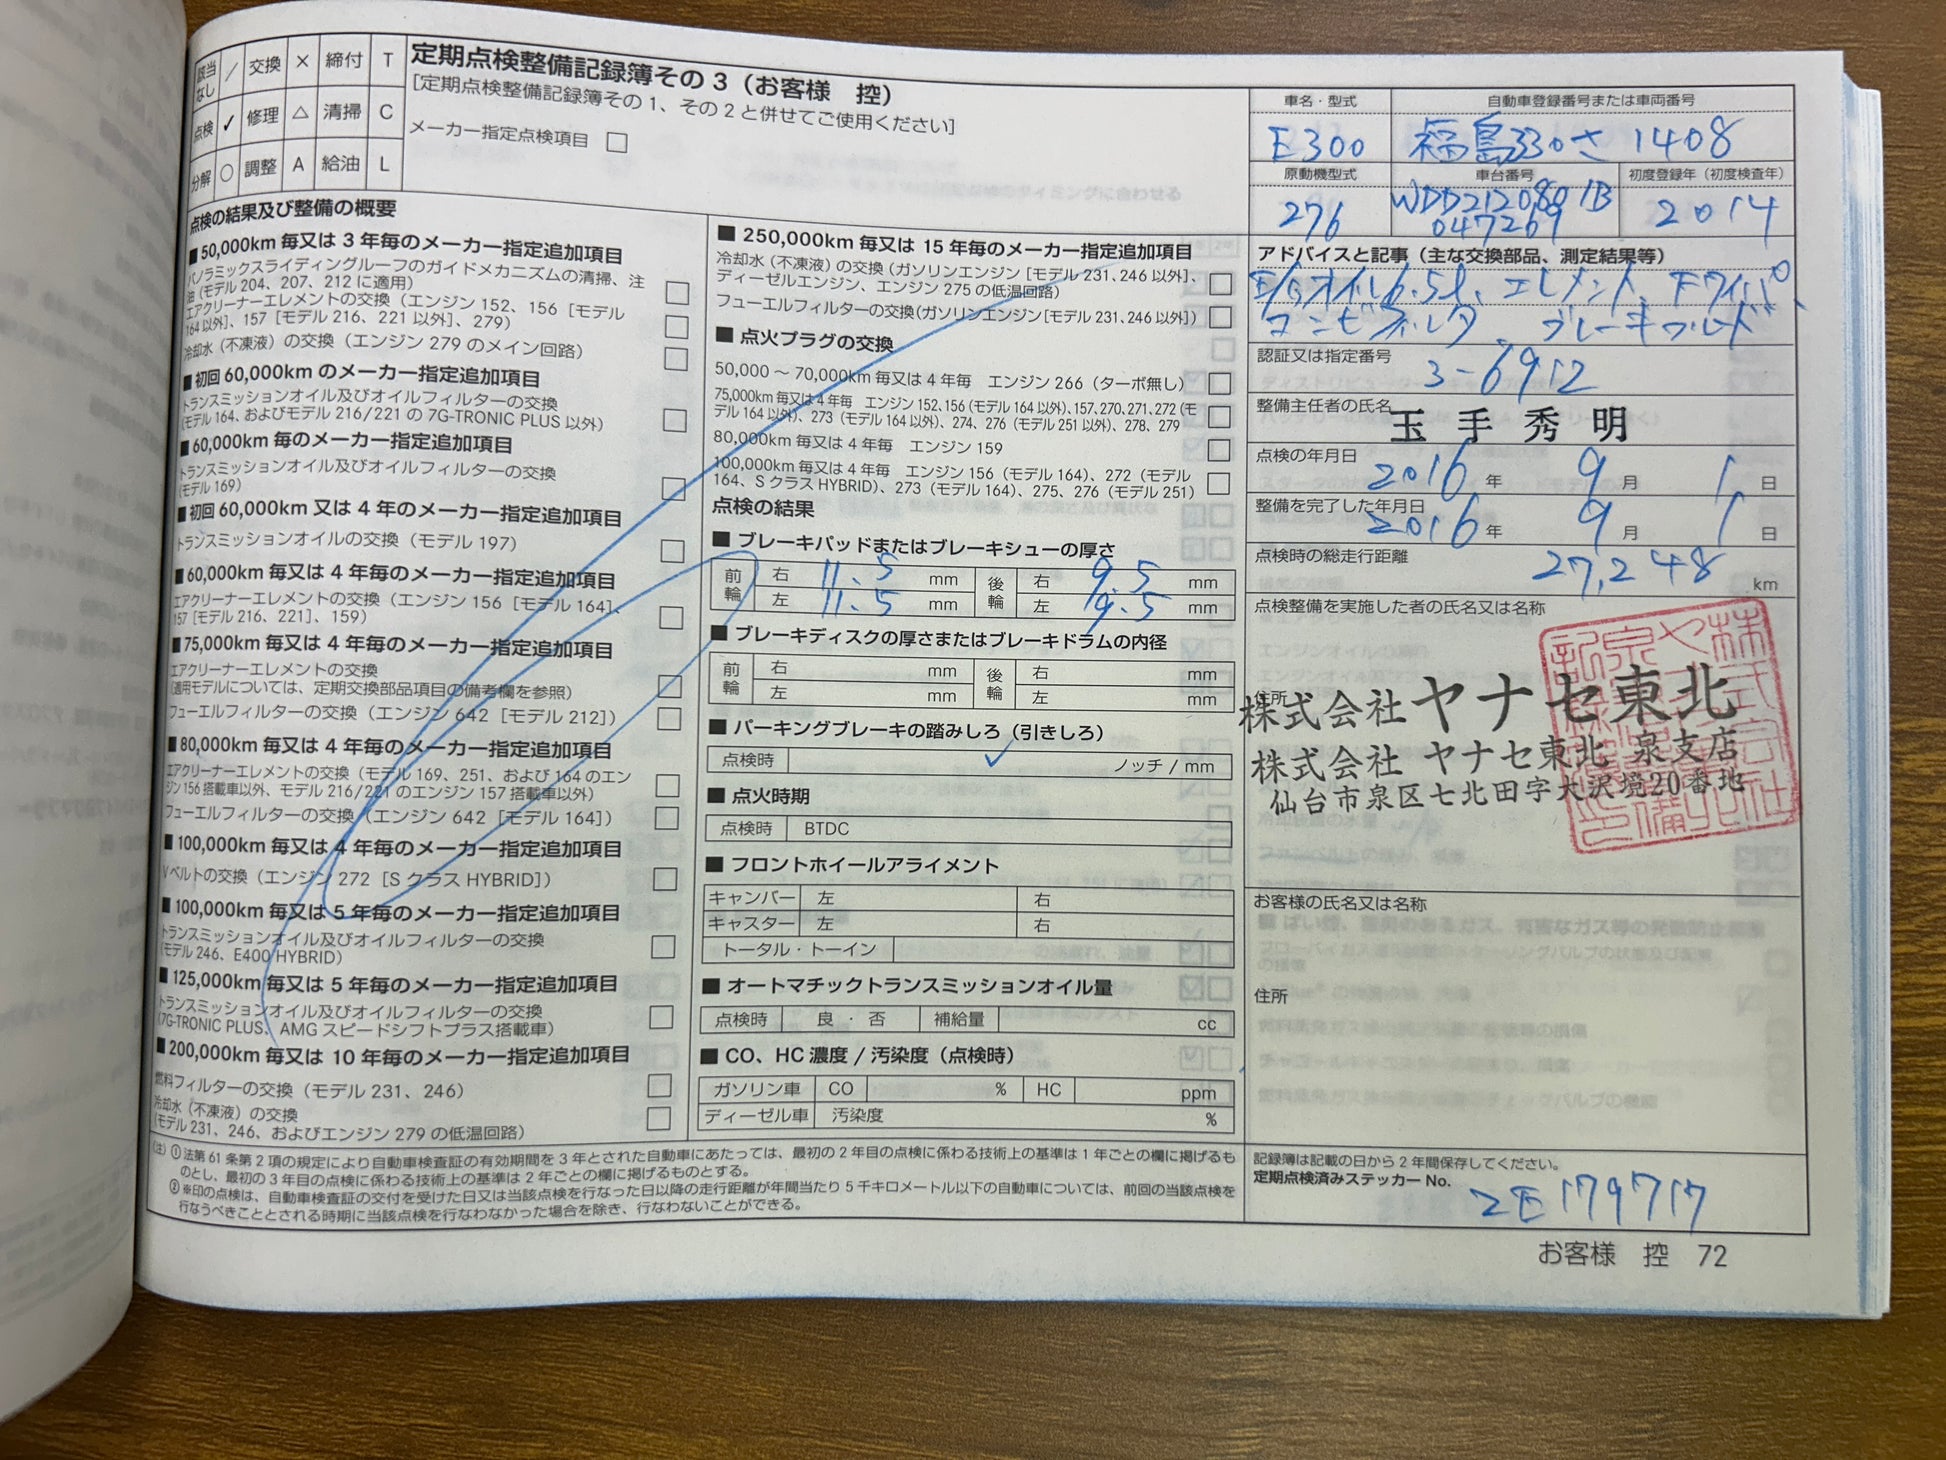 該当なし / 交換 × 締付 T
点検 ✓ 修理 △ 清掃 C
分解 ○ 調整 A 給油 L
定期点検整備記録簿その3（お客様 控）
[定期点検整備記録簿その1、その2と併せてご使用ください]
メーカー指定点検項目 □
点検の結果及び整備の概要
■ 50,000km 毎又は 3 年毎のメーカー指定追加項目
パノラミックスライディングルーフのガイドメカニズムの清掃、注
油（モデル 204、207、212 に適用） □
エアクリーナーエレメントの交換（エンジン 152、156［モデル
164 以外］、157［モデル 216、221 以外］、279） □
冷却水（不凍液）の交換（エンジン 279 のメイン回路） □
■ 初回 60,000km のメーカー指定追加項目
トランスミッションオイル及びオイルフィルターの交換
（モデル 164、およびモデル 216/221 の 7G-TRONIC PLUS 以外） □
■ 60,000km 毎のメーカー指定追加項目
トランスミッションオイル及びオイルフィルターの交換
（モデル 169） □
■ 初回 60,000km 又は 4 年毎のメーカー指定追加項目
トランスミッションオイルの交換（モデル 197） □
■ 60,000km 毎又は 4 年毎のメーカー指定追加項目
エアクリーナーエレメントの交換（エンジン 156［モデル 164］、
157［モデル 216、221］、159） □
■ 75,000km 毎又は 4 年毎のメーカー指定追加項目
エアクリーナーエレメントの交換
（適用モデルについては、定期交換部品項目の備考欄を参照） □
フューエルフィルターの交換（エンジン 642［モデル 212］） □
■ 80,000km 毎又は 4 年毎のメーカー指定追加項目
エアクリーナーエレメントの交換（モデル 169、251、および 164 のエン
ジン 156 搭載車以外、モデル 216/221 のエンジン 157 搭載車以外） □
フューエルフィルターの交換（エンジン 642［モデル 164］） □
■ 100,000km 毎又は 4 年毎のメーカー指定追加項目
V ベルトの交換（エンジン 272［S クラス HYBRID］） □
■ 100,000km 毎又は 5 年毎のメーカー指定追加項目
トランスミッションオイル及びオイルフィルターの交換
（モデル 246、E400 HYBRID） □
■ 125,000km 毎又は 5 年毎のメーカー指定追加項目
トランスミッションオイル及びオイルフィルターの交換
（7G-TRONIC PLUS、AMG スピードシフトプラス搭載車） □
■ 200,000km 毎又は 10 年毎のメーカー指定追加項目
燃料フィルターの交換（モデル 231、246） □
冷却水（不凍液）の交換
（モデル 231、246、およびエンジン 279 の低温回路） □
■ 250,000km 毎又は 15 年毎のメーカー指定追加項目
冷却水（不凍液）の交換（ガソリンエンジン［モデル 231、246 以外］、
ディーゼルエンジン、エンジン 275 の低温回路） □
フューエルフィルターの交換（ガソリンエンジン［モデル 231、246 以外］） □
■ 点火プラグの交換
50,000 ～ 70,000km 毎又は 4 年毎 エンジン 266（ターボ無し） □
75,000km 毎又は 4 年毎 エンジン 152、156（モデル 164 以外）、157、270、271、272（モ
デル 164 以外）、273（モデル 164 以外）、274、276（モデル 251 以外）、278、279 □
80,000km 毎又は 4 年毎 エンジン 159 □
100,000km 毎又は 4 年毎 エンジン 156（モデル 164）、272（モデル
164、S クラス HYBRID）、273（モデル 164）、275、276（モデル 251） □
点検の結果
■ ブレーキパッドまたはブレーキシューの厚さ
前輪 右 11.5 mm 後輪 右 9.5 mm
左 11.5 mm 左 9.5 mm
■ ブレーキディスクの厚さまたはブレーキドラムの内径
前輪 右 mm 後輪 右 mm
左 mm 左 mm
■ パーキングブレーキの踏みしろ（引きしろ）
点検時 ✓ ノッチ / mm
■ 点火時期
点検時 BTDC
■ フロントホイールアライメント
キャンバー 左 右
キャスター 左 右
トータル・トーイン
■ オートマチックトランスミッションオイル量
点検時 良 ・ 否 補給量 cc
■ CO、HC 濃度 / 汚染度（点検時）
ガソリン車 CO % HC ppm
ディーゼル車 汚染度 %
（注）① 法第 61 条第 2 項の規定により自動車検査証の有効期間を 3 年とされた自動車にあたっては、最初の 2 年目の点検に係わる技術上の基準は 1 年ごとの欄に掲げるも
のとし、最初の 3 年目の点検に係わる技術上の基準は 2 年ごとの欄に掲げるものとする。
② ※印の点検は、自動車検査証の交付を受けた日又は当該点検を行なった日以降の走行距離が年間当たり 5 千キロメートル以下の自動車については、前回の当該点検を
行なうべきこととされる時期に当該点検を行なわなかった場合を除き、行なわないことができる。
車名・型式 自動車登録番号または車両番号
E300 福島330さ 1408
原動機型式 車台番号 初度登録年（初度検査年）
276 WDD2120801B 2014
047269
アドバイスと記事（主な交換部品、測定結果等）
E/Gオイル6.5ℓ、エレメント、Fワイパ、
コンビフィルタ、ブレーキフルード
認証又は指定番号
3-6912
整備主任者の氏名
玉手秀明
点検の年月日 2016 年 9 月 1 日
整備を完了した年月日 2016 年 9 月 1 日
点検時の総走行距離 27,248 km
点検整備を実施した者の氏名又は名称
住所
株式会社ヤナセ東北
株式会社 ヤナセ東北 泉支店
仙台市泉区七北田字大沢境20番地
お客様の氏名又は名称
住所
記録簿は記載の日から 2 年間保存してください。
定期点検済みステッカー No.
2E179717
お客様 控 72